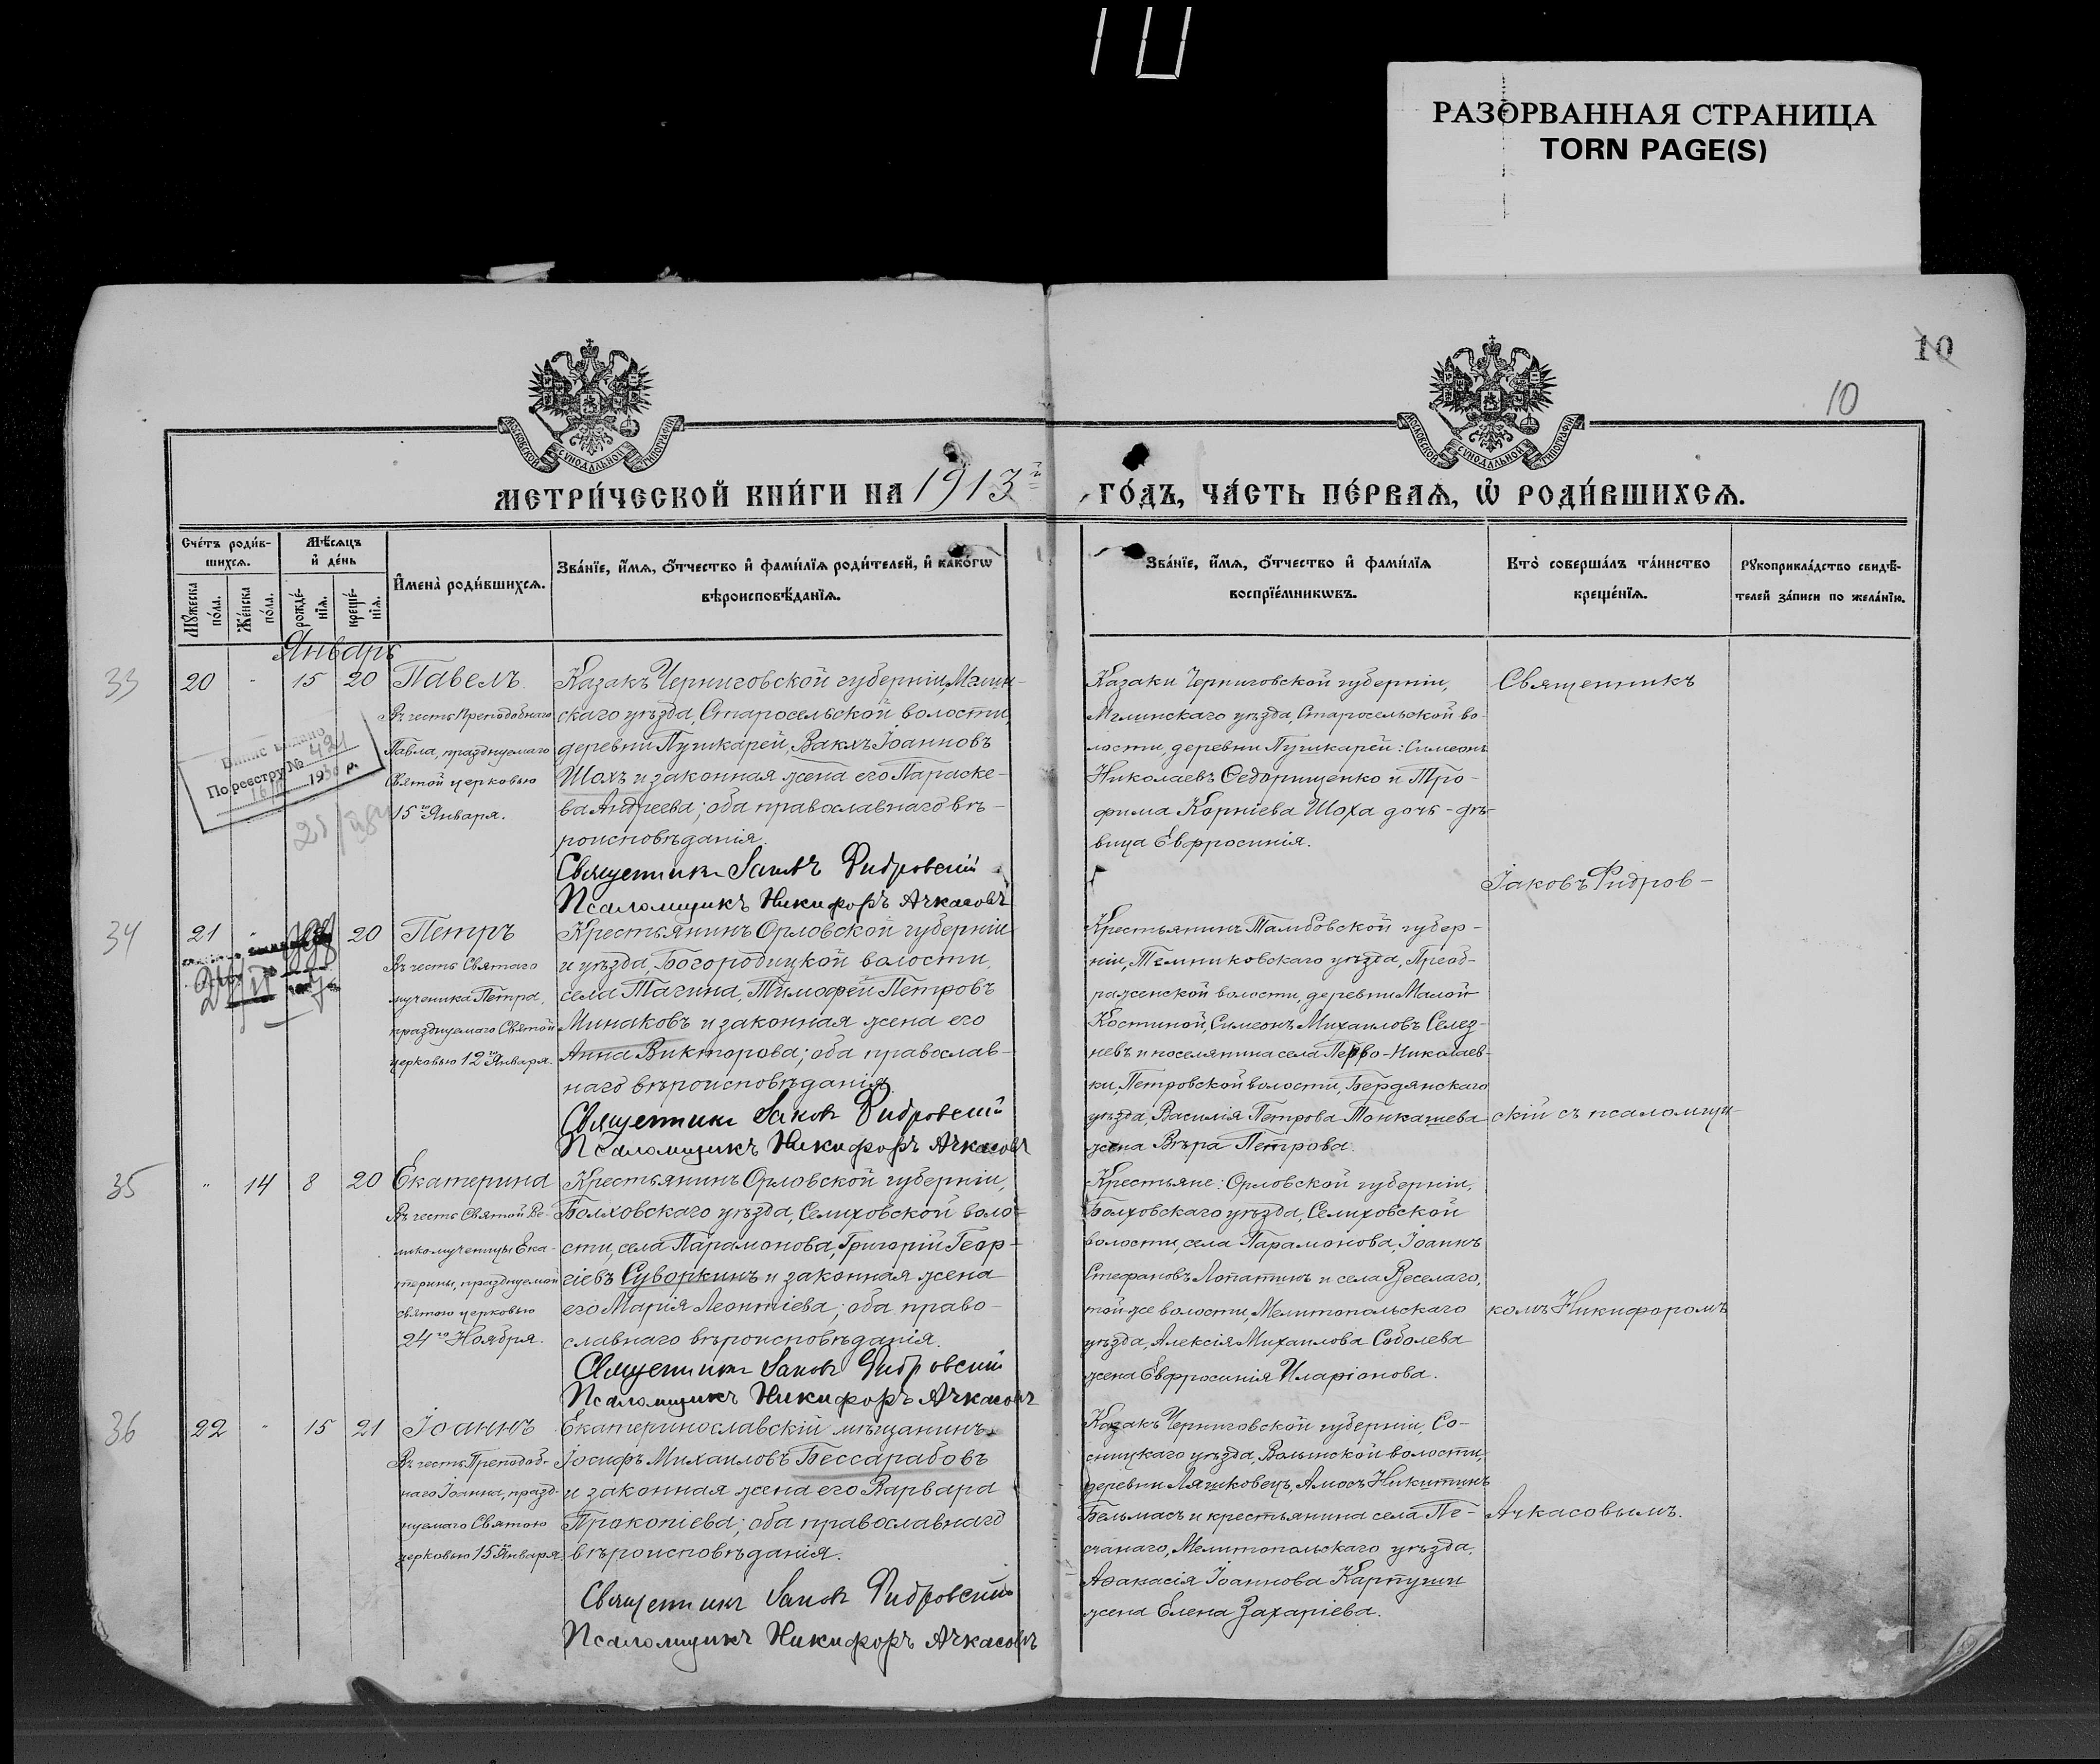 10
РАЗОРВАННАЯ СТРАНИЦА
TORN PAGE(S)
10
10
МОСКОВСКОЙ СУНОДАЛЬНОЙ ТИПОГРАФІИ
МОСКОВСКОЙ СУНОДАЛЬНОЙ ТИПОГРАФІИ
МЕТРИ́ЧЕСКОЙ КНИ́ГИ НА 1913й ГО́ДЪ, ЧА́СТЬ ПЕ́РВАЯ, Ѡ҆ РОДИ́ВШИХСЯ.
Сче́тъ роди́в-
шихся.
Мꙋжеска по́ла.
Же́нска по́ла.
Мѣ́сяцъ
и҆ де́нь
рожде́-
нїя.
креще́-
нїя.
И҆мена̀ роди́вшихся.
Зва́нїе, и҆́мя, ѻ҆́тчество и҆ фами́лїя роди́телей, и҆ како́гѡ
вѣроисповѣ́данїя.
Зва́нїе, и҆́мя, ѻ҆́тчество и҆ фами́лїя
воспрїе́мникѡвъ.
Кто̀ соверша́лъ та́инство
креще́нїя.
Рꙋкоприкла́дство свидѣ́-
телей за́писи по жела́нїю.
Январь
33
20
-
15
20
Павелъ
Въ честь Преподобнаго
Павла, празднуемаго
Святой церковью
15го Января.
По реестру № 421
193 р.
Казакъ Черниговской губерніи, Мглин-
скаго уѣзда, Старосельской волости,
деревни Пушкарей, Вакхъ Іоанновъ
Шохъ и законная жена его Параске-
ва Андреева; оба православнаго вѣ-
роисповѣданія.
Священникъ Іаковъ Фидровскій
Псаломщикъ Никифоръ Ачкасовъ
Казаки Черниговской губерніи,
Мглинскаго уѣзда, Старосельской во-
лости, деревни Пушкарей: Симеонъ
Николаевъ Ѳедорищенко и Тро-
фима Корніева Шоха дочь - дѣ-
вица Евфросинія.
Священникъ
Іаковъ Фидров-
34
21
-
20
Петръ
Въ честь Святаго
мученика Петра,
празднуемаго Святой
церковью 12го Января.
Крестьянинъ Орловской губерніи
и уѣзда, Богородицкой волости,
села Тагина, Тимофей Петровъ
Минаковъ и законная жена его
Анна Викторова; оба православ-
наго вѣроисповѣданія.
Священникъ Іаковъ Фидровскій
Псаломщикъ Никифоръ Ачкасовъ
Крестьянинъ Тамбовской губер-
ніи, Темниковскаго уѣзда, Преоб-
раженской волости, деревни Малой
Костиной, Симеонъ Михаиловъ Селез-
невъ и поселянина села Перво-Николаев-
ки, Петровской волости, Бердянскаго
уѣзда, Василія Петрова Тонкашева
жена Вѣра Петрова.
скій съ псаломщи-
35
"
14
8
20
Екатерина
Въ честь Святой Ве-
ликомученицы Ека-
терины, празднуемой
святою церковью
24го Ноября.
Крестьянинъ Орловской губерніи,
Болховскаго уѣзда, Селиховской воло-
сти, села Парамонова, Григорій Геор-
гіевъ Суворкинъ и законная жена
его Марія Леонтіева; оба право-
славнаго вѣроисповѣданія.
Священникъ Іаковъ Фидровскій
Псаломщикъ Никифоръ Ачкасовъ
Крестьяне: Орловской губерніи,
Болховскаго уѣзда, Селиховской
волости, села Парамонова, Іоаннъ
Стефановъ Лопатинъ и села Веселаго,
той-же волости, Мелитопольскаго
уѣзда, Алексія Михаилова Соболева
жена Евфросинія Иларіонова.
комъ Никифоромъ
36
22
-
15
21
Іоаннъ
Въ честь Преподоб-
наго Іоанна, празд-
нуемаго Святою
церковью 15го Января.
Екатеринославскій мѣщанинъ
Іосифъ Михаиловъ Бессарабовъ
и законная жена его Варвара
Прокопіева; оба православнаго
вѣроисповѣданія.
Священникъ Іаковъ Фидровскій
Псаломщикъ Никифоръ Ачкасовъ
Казакъ Черниговской губерніи, Со-
сницкаго уѣзда, Волынской волости,
деревни Ляшковець, Амосъ Никитинъ
Бельмасъ и крестьянина села Пе-
счанаго, Мелитопольскаго уѣзда,
Аѳанасія Іоаннова Карпушин
жена Елена Захаріева.
Ачкасовымъ.